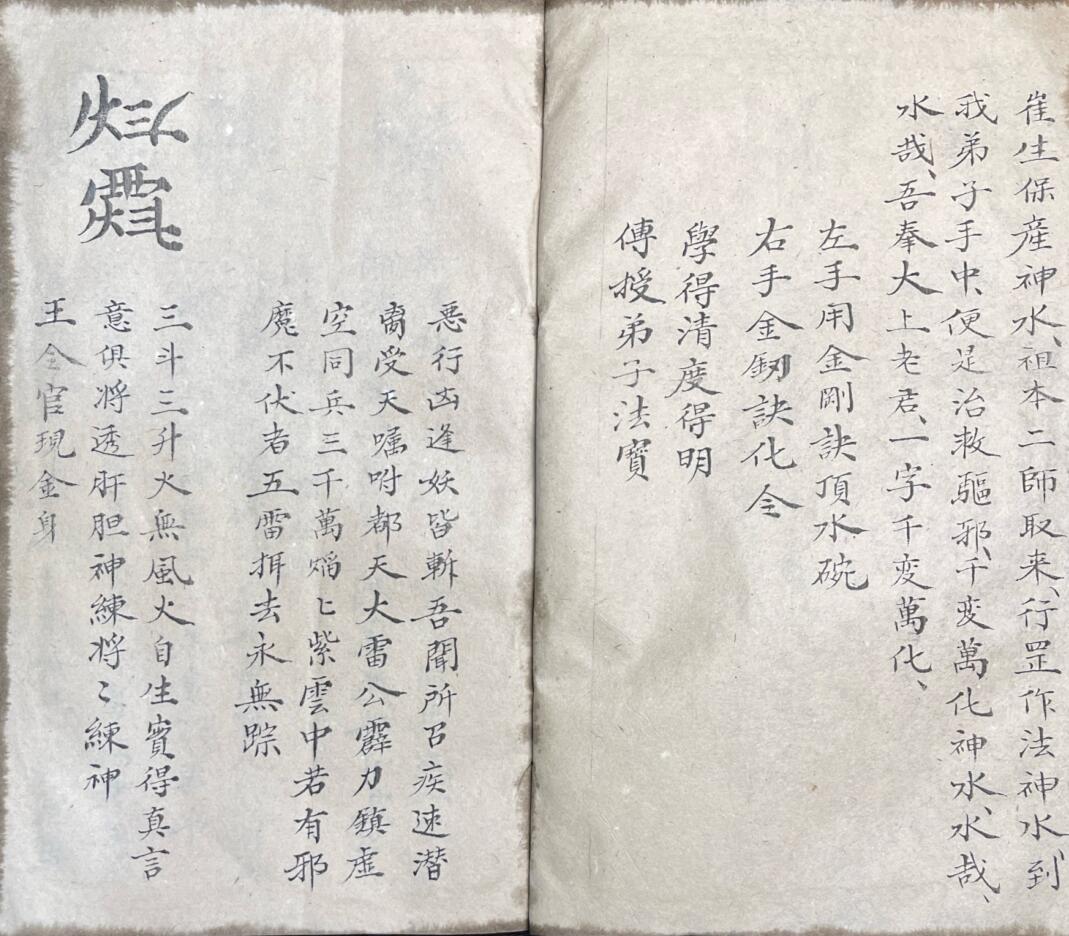 崔生保産神水、祖本二師取来、行罡作法神水到
我弟子手中、便是治救驅邪、千変萬化神水、水哉、
水哉、吾奉大上老君、一字千変萬化、
左手用金剛訣頂水碗
右手金釰訣化仝
學得清度得明
傅授弟子法寳
惡行凶逢妖皆斬吾聞所召疾速潜
离受天囑咐都天大雷公霹力鎮虚
空同兵三千萬焰〻紫雲中若有邪
魔不伏者五雷挕去永無踪
三斗三升火無風火自生實得真言
意俱将透肝胆神練将〻練神
王仝官現金身